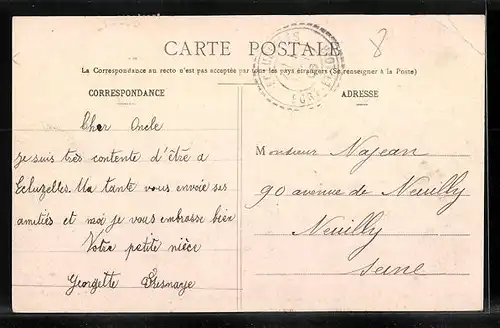 CARTE POSTALE
8
La Correspondance au recto n'est pas acceptée par tous les pays étrangers (Se renseigner à la Poste)
CORRESPONDANCE
ADRESSE
Cher Oncle
je suis très contente d'être à
Ecluzelles. Ma tante vous envoie ses
amitiés et moi je vous embrasse bien
Votre petite nièce
Georgette
Monsieur Najean
90 avenue de Neuilly
Neuilly
Seine